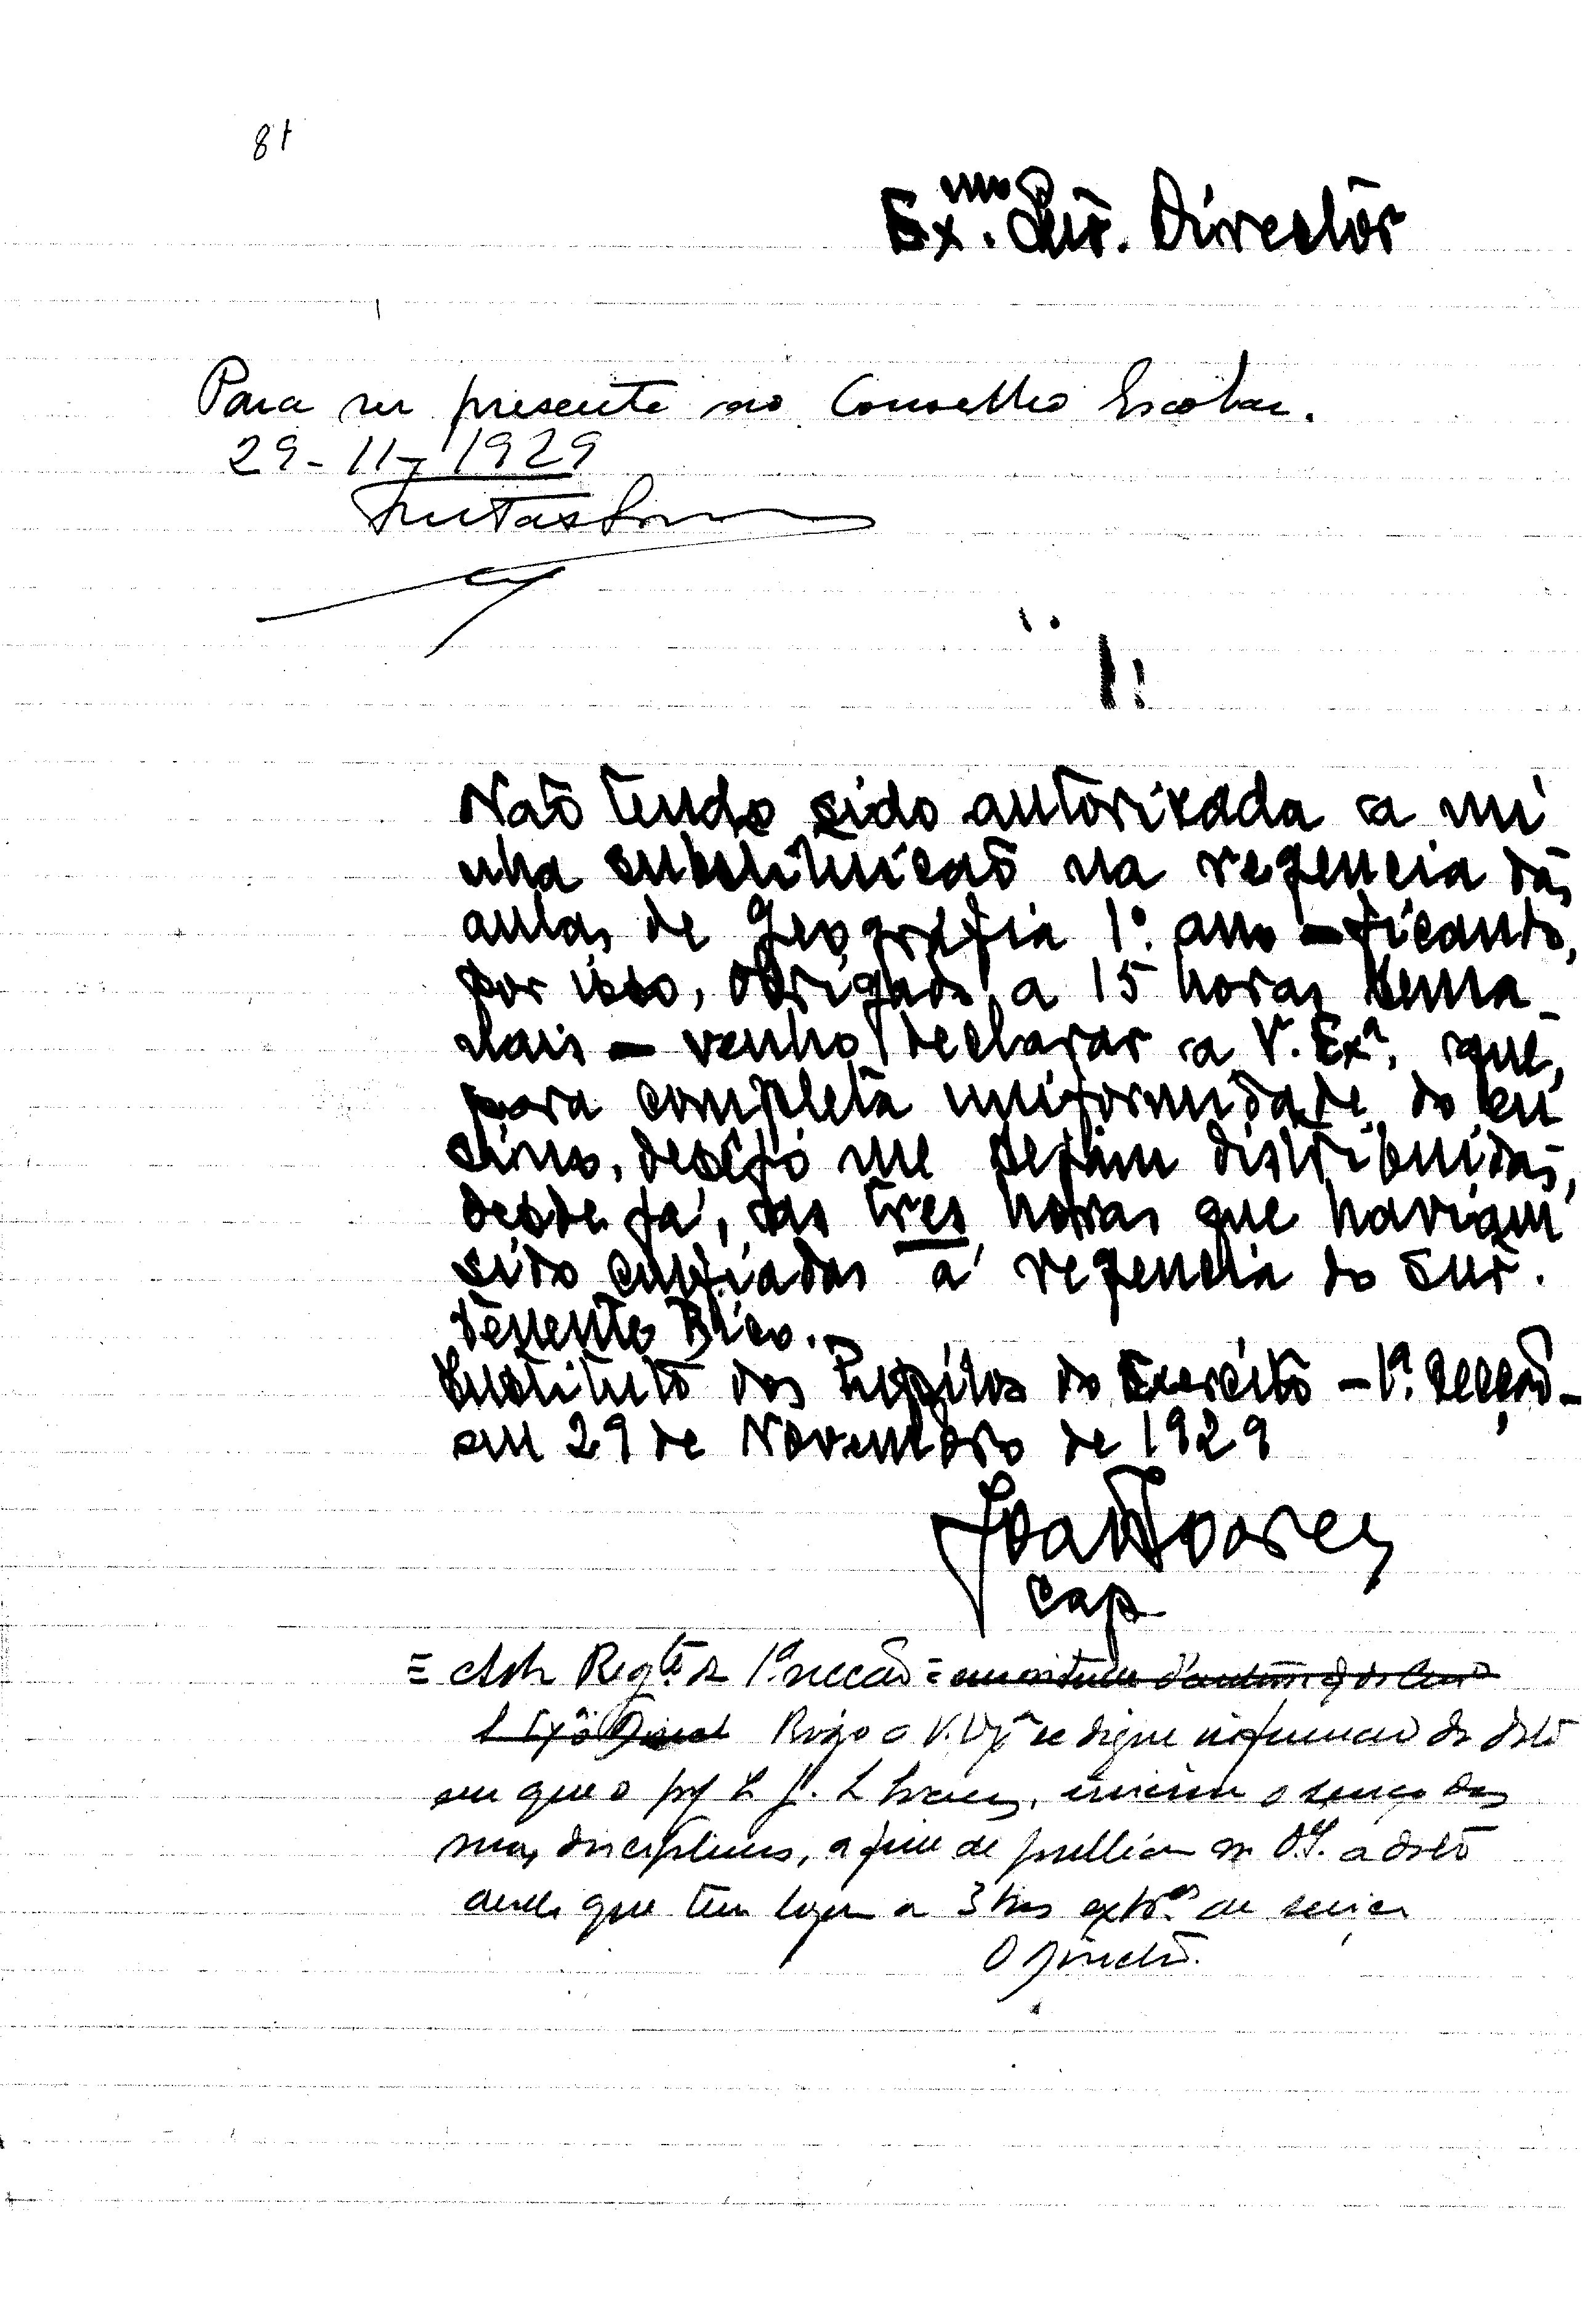 81
Ex.mo Snr. Director
Para ser presente ao Conselho Escolar.
29-11-1929
Não tendo sido autorizada a mi
nha substituicão na regencia das
aulas de Geografia 1º. ano - ficando,
por isso, obrigado a 15 horas sema_
nais - venho declarar a V. Exª, que,
para completa uniformidade do en
sino, desejo me sejam distribuidas,
desde já, as três horas que haviam
sido confiadas á regencia do Snr.
Tenente Brico.
Instituto dos Pupilos do Exercito - 1ª. Secção -
em 29 de Novembro de 1929
João Soares
Cap
= Regte da 1ª seccão =
Rogo a V. Exª se digne informar da data
em que o prof , iniciou o serviço das
suas disciplinas, a fim de publicar em O.S. a data
desde que tem logar a 3 hras extrªs de serviço
O Director.